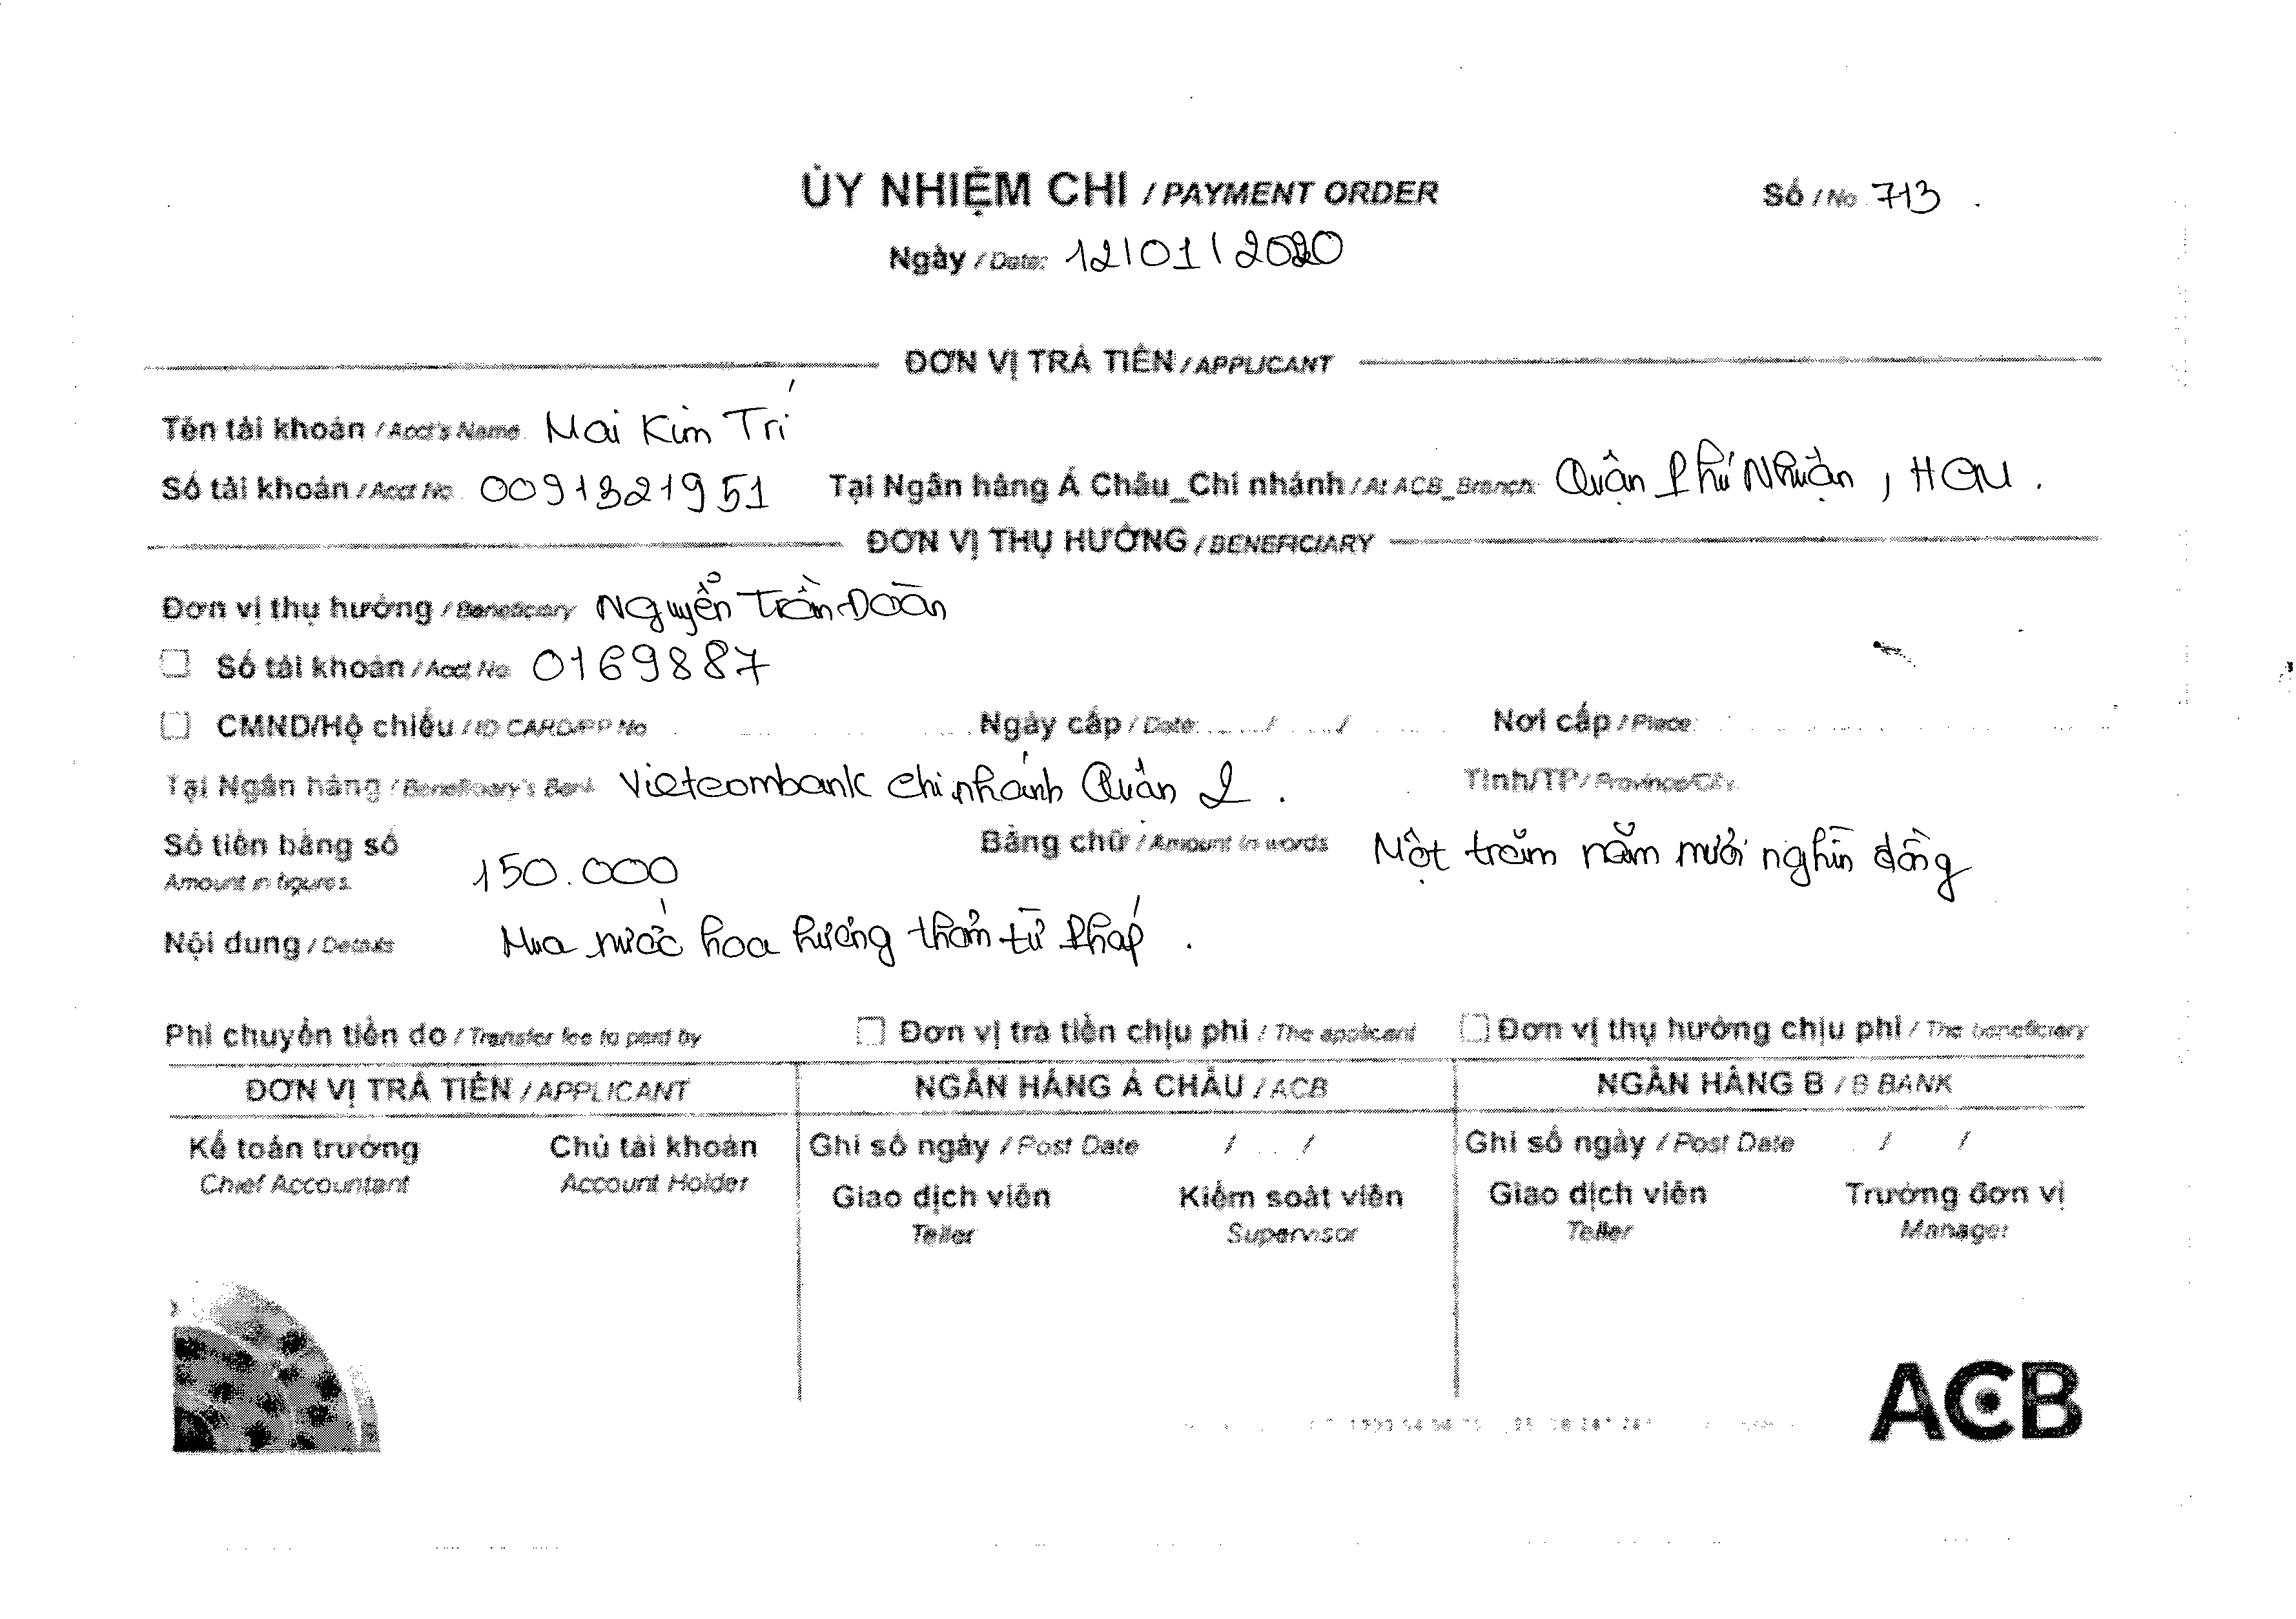 ỦY NHIỆM CHI / PAYMENT ORDER
Số / No 713
Ngày / Date: 12/01/2020
ĐƠN VỊ TRẢ TIỀN / APPLICANT
Tên tài khoản / Acct's Name Mai Kim Trí
Số tài khoản / Acct No. 0091321951 Tại Ngân hàng Á Châu_Chi nhánh / At ACB_Branch: Quận Phú Nhuận, HCM.
ĐƠN VỊ THỤ HƯỞNG / BENEFICIARY
Đơn vị thụ hưởng / Beneficiary Nguyễn Trần Doãn
Số tài khoản / Acct No 0169887
CMND/Hộ chiếu / ID CARD/PP No Ngày cấp / Date: / / Nơi cấp / Place:
Tại Ngân hàng / Beneficiary's Bank Vietcombank chi nhánh Quận 2. Tỉnh/TP / Province/City
Số tiền bằng số 150.000 Bằng chữ / Amount in words Một trăm năm mươi nghìn đồng
Amount in figures
Nội dung / Details Mua nước hoa hương thơm từ Pháp.
Phí chuyển tiền do / Transfer fee to paid by Đơn vị trả tiền chịu phí / The applicant Đơn vị thụ hưởng chịu phí / The beneficiary
ĐƠN VỊ TRẢ TIỀN / APPLICANT NGÂN HÀNG Á CHÂU / ACB NGÂN HÀNG B / B BANK
Kế toán trưởng Chủ tài khoản Ghi sổ ngày / Post Date / / Ghi sổ ngày / Post Date / /
Chief Accountant Account Holder
Giao dịch viên Kiểm soát viên Giao dịch viên Trưởng đơn vị
Teller Supervisor Teller Manager
ACB